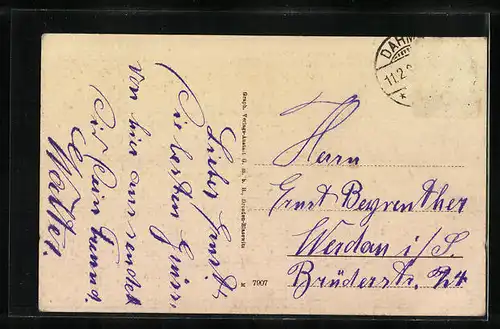 Lieber Ernst!
Die besten Grüsse
von hier aus sendet
Dir Dein Freund
Walter.
Graph. Verlags-Anstalt G. m. b. H., Dresden
* 7907
DAHM
11.2.
Herrn
Ernst
Werdau i/S.
Brüderstr.